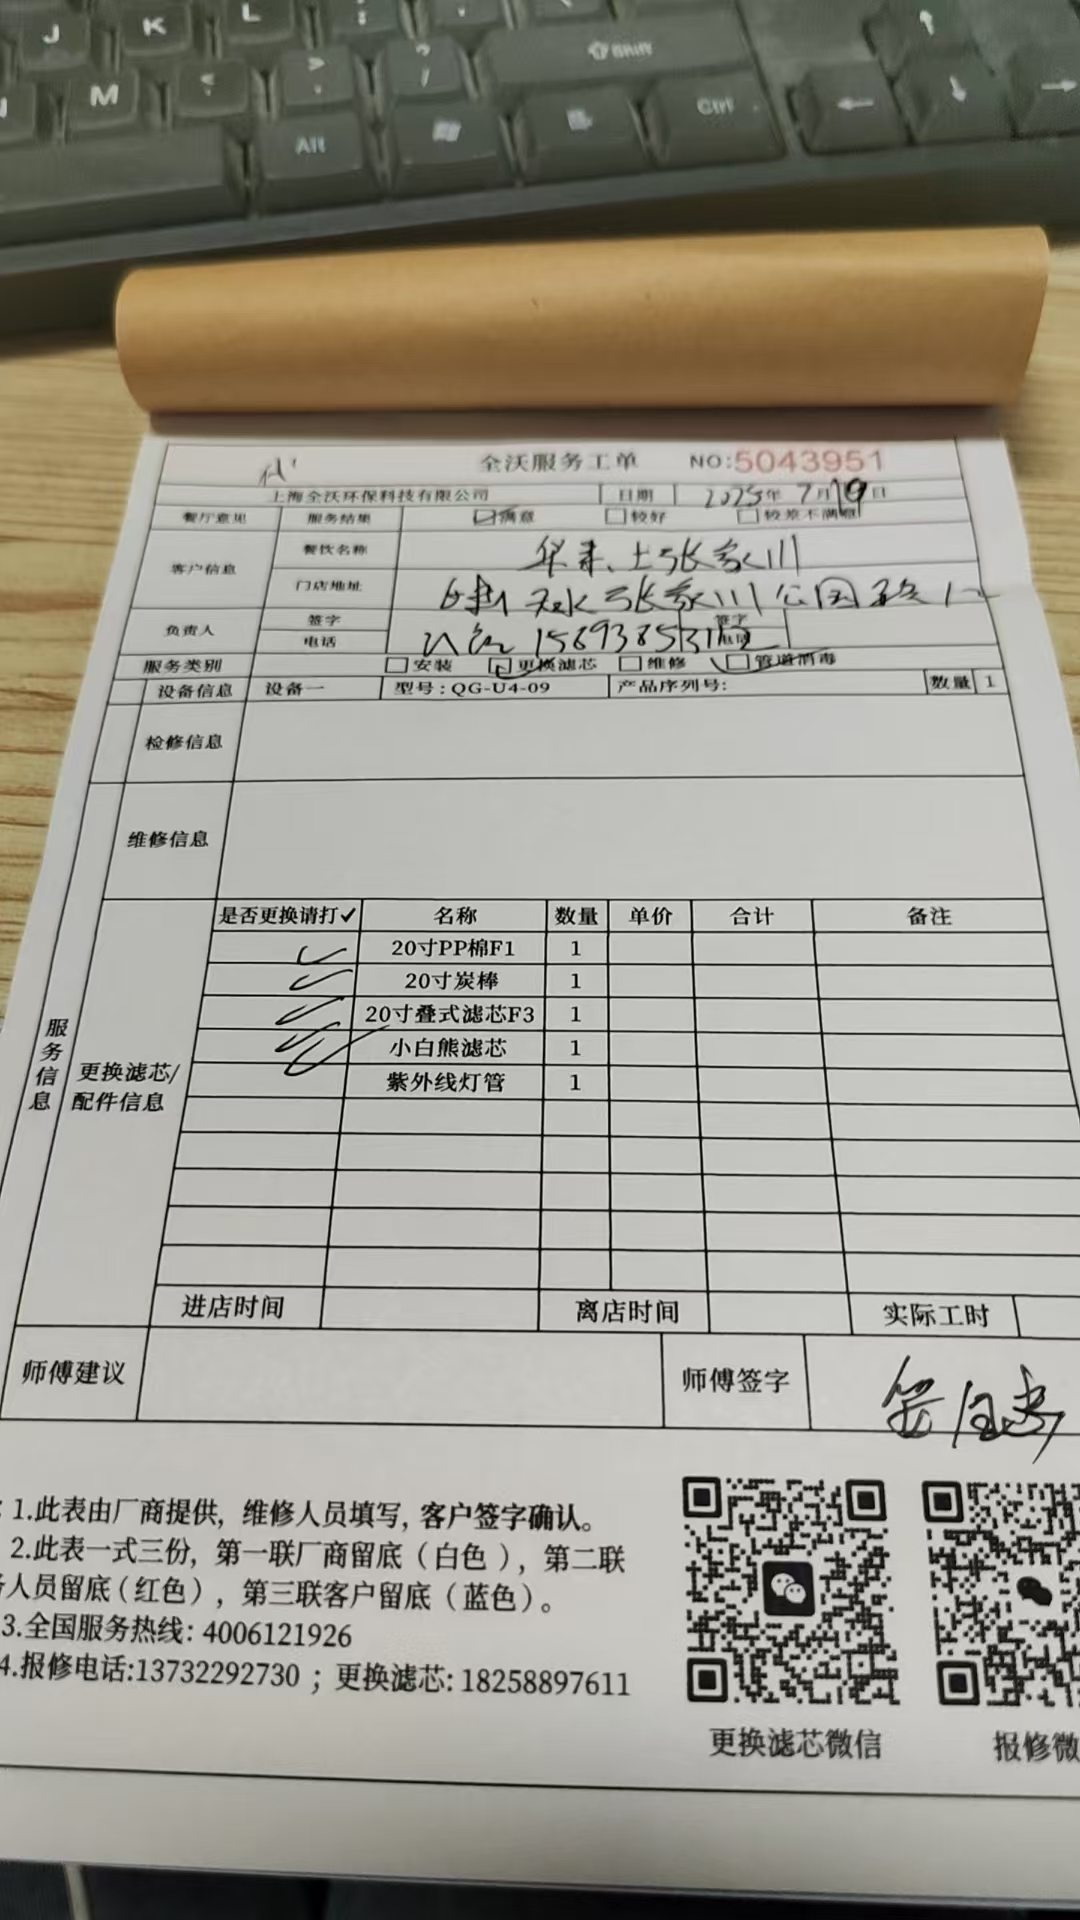 J K L
M < > ? / ⇧Shift
Alt Ctrl
代 全沃服务工单 NO:5043951
上海全沃环保科技有限公司 日期 2025年7月10日
餐厅意见 服务结果 满意 较好 较差不满意
客户信息 餐饮名称 华莱士张家川
门店地址 张家川公园
负责人 签字 签字
电话 电话
服务类别 安装 更换滤芯 维修 管道消毒
设备信息 设备一 型号:QG-U4-09 产品序列号: 数量 1
检修信息
维修信息
服务信息
更换滤芯/配件信息
是否更换请打✓ 名称 数量 单价 合计 备注
✓ 20寸PP棉F1 1
✓ 20寸炭棒 1
✓ 20寸叠式滤芯F3 1
✓ 小白熊滤芯 1
✓ 紫外线灯管 1
进店时间 离店时间 实际工时
师傅建议 师傅签字
: 1.此表由厂商提供, 维修人员填写, 客户签字确认。
2.此表一式三份, 第一联厂商留底(白色), 第二联
人员留底(红色), 第三联客户留底(蓝色)。
3.全国服务热线: 4006121926
4.报修电话:13732292730 ; 更换滤芯: 18258897611
更换滤芯微信 报修微